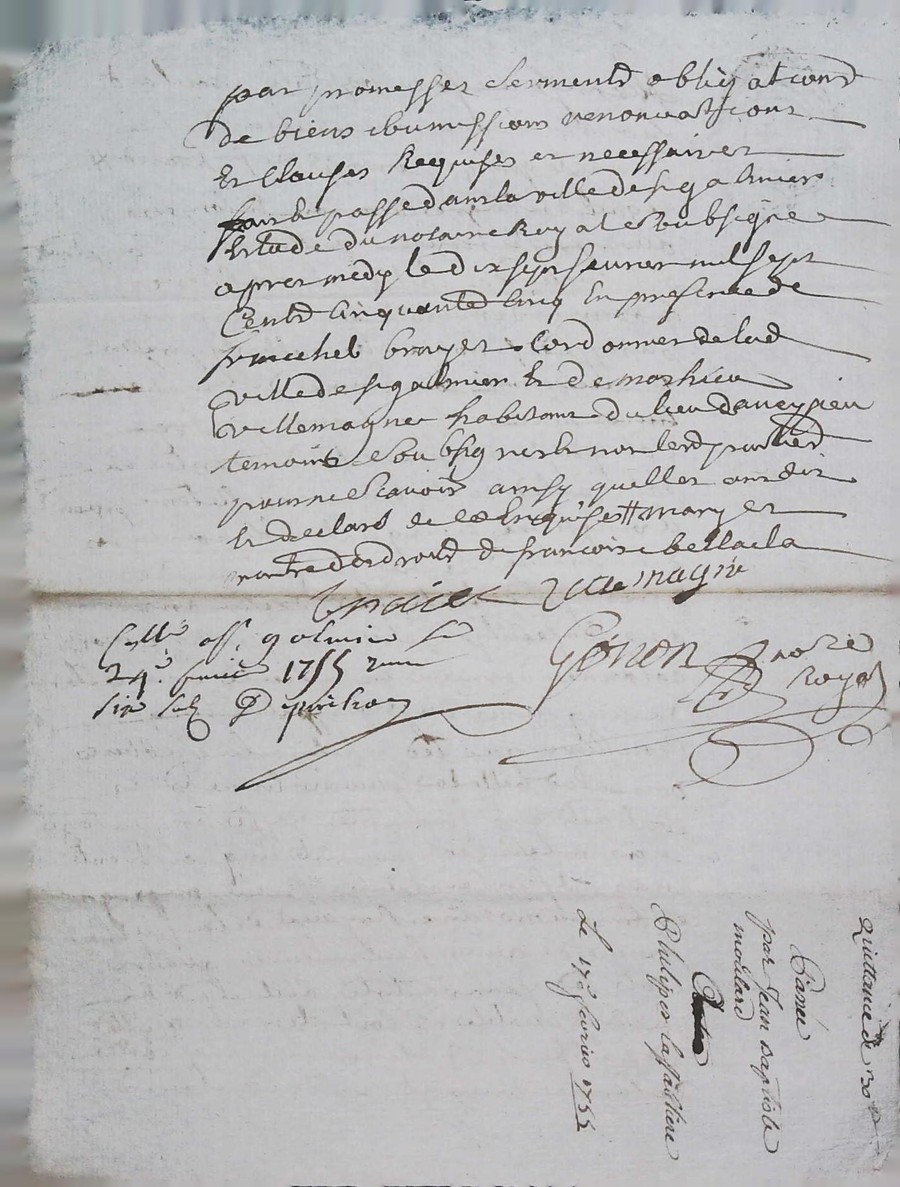 par promesses serments obligations
de biens soumissions renonciations
Et Clauses Requises et necessaires
fait & passe dans la ville de st galmier
Etude du notaire Royal Soubsigne
apres midy le dix sept feuvrier mil sept
Cents Cinquante Cinq En presence de
sr michel brayer Cordonnier de lad
ville de st galmier Et de mathieu
villemagne habitant du lieu daveyzieu
temoins Soubsignes & non lesd parties
pour ne Scavoir ainsy quelles ont dit
Et declaré de ce Enquises # mary et
maitre des droits de francoise bella la
villemagne
Gonon no re
Royal
Collé a st galmier le
24e fevrier 1755 Reçu
six sols
Quittance de 130 ll
Passée
par Jean Baptiste
moulard
A
Philiper lassabliere
Le 17e fevrier 1755